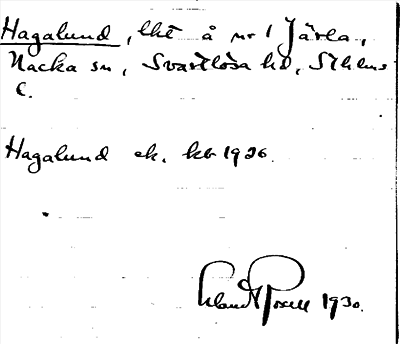 Hagalund, lht å nr 1 Järla,
Nacka sn, Svartlösa hd, Sthlms
C.
Hagalund ek. kb 1926.
1930.